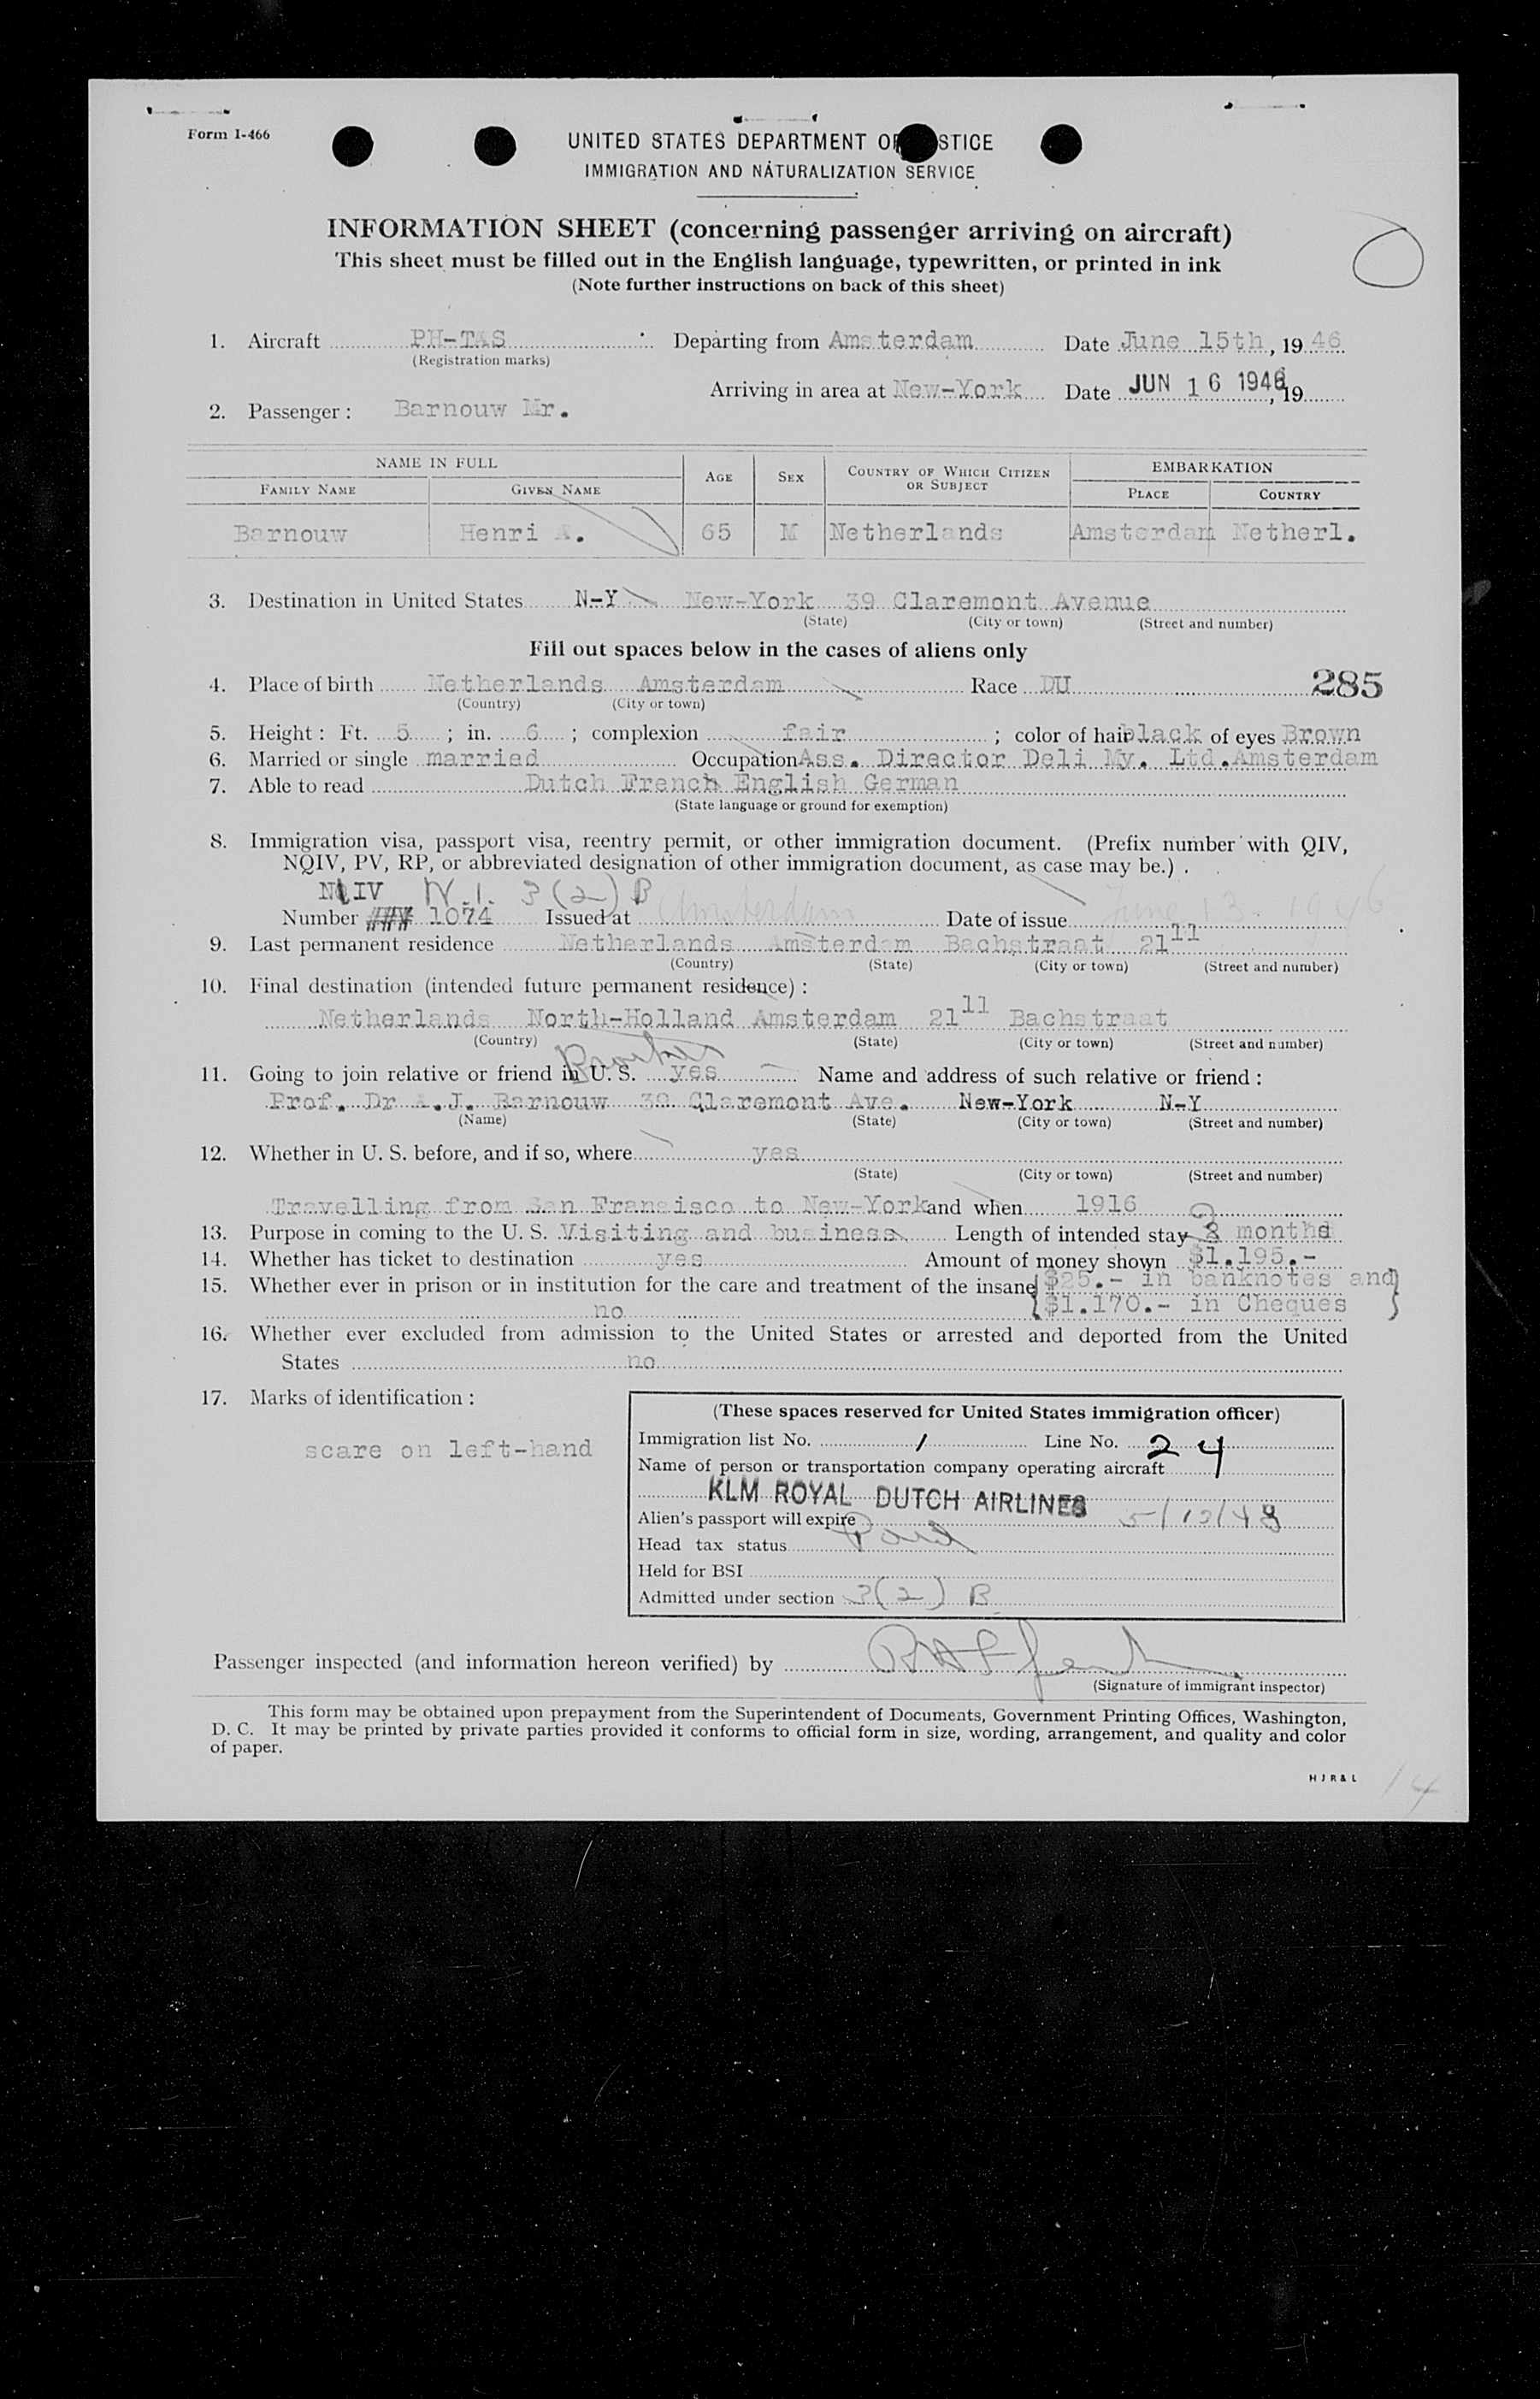 Form I-466
UNITED STATES DEPARTMENT OF STICE
IMMIGRATION AND NATURALIZATION SERVICE
INFORMATION SHEET (concerning passenger arriving on aircraft)
This sheet must be filled out in the English language, typewritten, or printed in ink
(Note further instructions on back of this sheet)
1. Aircraft PH-TAS Departing from Amsterdam Date June 15th, 1946
(Registration marks)
Arriving in area at New-York Date JUN 16 1946, 19
2. Passenger: Barnouw Mr.
NAME IN FULL AGE SEX COUNTRY OF WHICH CITIZEN OR SUBJECT EMBARKATION
FAMILY NAME GIVEN NAME PLACE COUNTRY
Barnouw Henri A. 65 M Netherlands Amsterdam Netherl.
3. Destination in United States N-Y New-York 39 Claremont Avenue
(State) (City or town) (Street and number)
Fill out spaces below in the cases of aliens only
4. Place of birth Netherlands Amsterdam Race DU 285
(Country) (City or town)
5. Height: Ft. 5 ; in. 6 ; complexion fair ; color of hair black of eyes Brown
6. Married or single married Occupation Ass. Director Deli My. Ltd. Amsterdam
7. Able to read Dutch French English German
(State language or ground for exemption)
8. Immigration visa, passport visa, reentry permit, or other immigration document. (Prefix number with QIV,
NQIV, PV, RP, or abbreviated designation of other immigration document, as case may be.)
NQIV N.I. 3(2)B
Number 1074 Issued at Amsterdam Date of issue June 13 1946
9. Last permanent residence Netherlands Amsterdam Bachstraat 21 11
(Country) (State) (City or town) (Street and number)
10. Final destination (intended future permanent residence):
Netherlands North-Holland Amsterdam 21 11 Bachstraat
(Country) (State) (City or town) (Street and number)
Brother
11. Going to join relative or friend in U. S. yes Name and address of such relative or friend:
Prof. Dr A.J. Barnouw 39 Claremont Ave. New-York N-Y
(Name) (State) (City or town) (Street and number)
12. Whether in U. S. before, and if so, where yes
(State) (City or town) (Street and number)
Travelling from San Fransisco to New-York and when 1916
13. Purpose in coming to the U. S. Visiting and business Length of intended stay months
14. Whether has ticket to destination yes Amount of money shown $1.195.-
15. Whether ever in prison or in institution for the care and treatment of the insane $25.- in banknotes and
no $1.170.- in Cheques
16. Whether ever excluded from admission to the United States or arrested and deported from the United
States no
17. Marks of identification:
scare on left-hand
(These spaces reserved for United States immigration officer)
Immigration list No. 1 Line No. 24
Name of person or transportation company operating aircraft
KLM ROYAL DUTCH AIRLINES
Alien's passport will expire 5/13/48
Head tax status Paid
Held for BSI
Admitted under section 3(2) B
Passenger inspected (and information hereon verified) by
(Signature of immigrant inspector)
This form may be obtained upon prepayment from the Superintendent of Documents, Government Printing Offices, Washington,
D. C. It may be printed by private parties provided it conforms to official form in size, wording, arrangement, and quality and color
of paper.
H J R & L
14